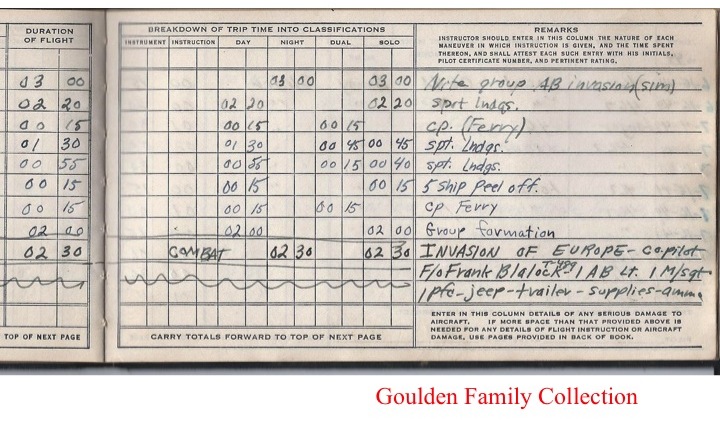 DURATION OF FLIGHT
BREAKDOWN OF TRIP TIME INTO CLASSIFICATIONS
REMARKS
INSTRUMENT INSTRUCTION DAY NIGHT DUAL SOLO
INSTRUCTOR SHOULD ENTER IN THIS COLUMN THE NATURE OF EACH
MANEUVER IN WHICH INSTRUCTION IS GIVEN, AND THE TIME SPENT
THEREON, AND SHALL ATTEST EACH SUCH ENTRY WITH HIS INITIALS,
PILOT CERTIFICATE NUMBER, AND PERTINENT RATING.
03 00 03 00 03 00 Nite group AB invasion (sim)
02 20 02 20 02 20 sprt lndgs.
00 15 00 15 00 15 cp. (Ferry)
01 30 01 30 00 45 00 45 spt. Lndgs.
00 55 00 55 00 15 00 40 spt. Lndgs.
00 15 00 15 00 15 5 ship peel off.
00 15 00 15 00 15 cp Ferry
02 00 02 00 02 00 Group formation
02 30 COMBAT 02 30 02 30 INVASION OF EUROPE - Co-pilot
F/o Frank Blalock - 1 AB Lt. 1 M/sgt
1 pfc - jeep - trailer - supplies - ammo
ENTER IN THIS COLUMN DETAILS OF ANY SERIOUS DAMAGE TO
AIRCRAFT. IF MORE SPACE THAN THAT PROVIDED ABOVE IS
NEEDED FOR ANY DETAILS OF FLIGHT INSTRUCTION OR AIRCRAFT
DAMAGE, USE PAGES PROVIDED IN BACK OF BOOK.
TOP OF NEXT PAGE
CARRY TOTALS FORWARD TO TOP OF NEXT PAGE
Goulden Family Collection